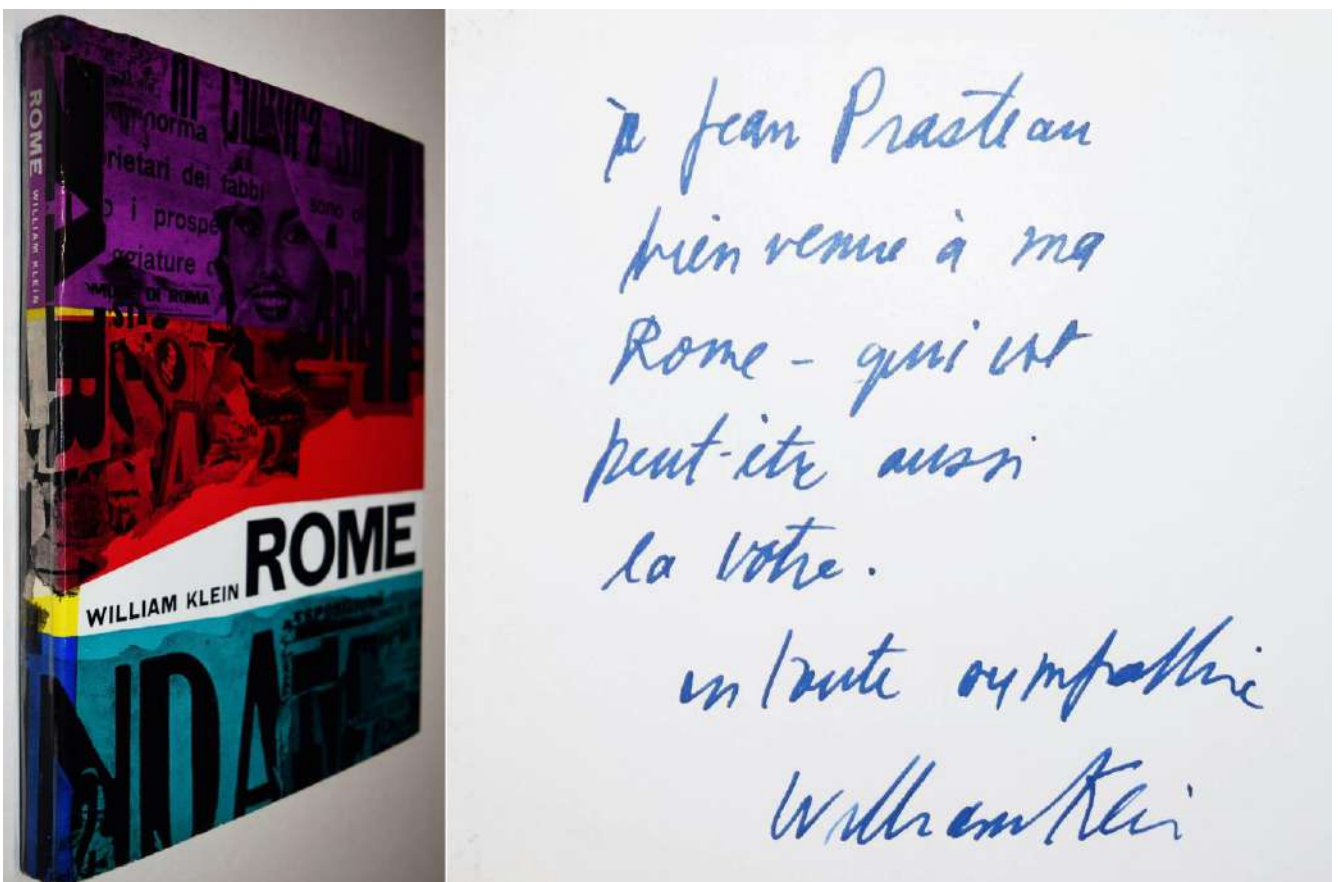 ROME WILLIAM KLEIN
norma
rietari dei fabbi
sono
i prospe
ggiature
DI ROMA
WILLIAM KLEIN ROME
NDA
à Jean Prasteau
bienvenue à ma
Rome - qui est
peut-être aussi
la votre.
en toute sympathie
William Klein